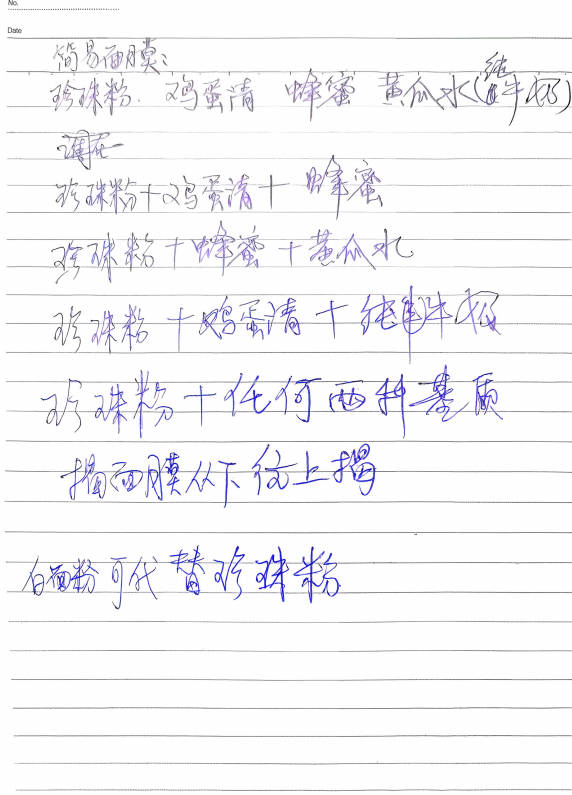 No.
Date
简易面膜:
珍珠粉. 鸡蛋清 蜂蜜 黄瓜水(纯牛奶)
珍珠粉+鸡蛋清+蜂蜜
珍珠粉+蜂蜜+黄瓜水
珍珠粉+鸡蛋清+纯牛奶
珍珠粉+任何两种基质
揭面膜从下往上揭
白面粉可代替珍珠粉